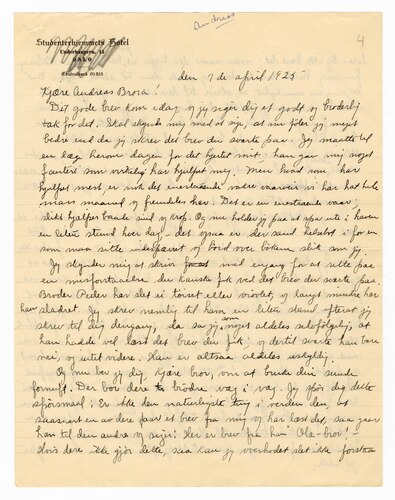 Andreas
4
Studenterhjemmets Hotel
Underhaugsvn. 15
OSLO
Centralbord 61815
den 7de april 1925
Kjære Andreas Brora!
Det gode brev kom idag og jeg sigir dig et godt og broderlig
tak for det. Skal skynde mig med at si, at nu føler jeg meget
bedre end da jeg skrev det brev din svarte paa. Jeg maatte til
en læge herom dagen for det hjertet mit han gav mig noget
som virkelig har hjulpet mig. Men hvad som har
hjulpet mest er nok det enestaaende vakre vaarveir vi har hat hele
mars maaned og fremdeles har. Det er en enestaaende vaar,
slikt hjælper baade sind og krop. Og nu holder jeg paa at spa ute i haven
en liten stund hver dag det ogsaa er den sand helsebot for en
som maa sitte indesperret og bøid over boken slik som jeg.
Jeg skynder mig at skriv med engang for at rette paa
en misforstaaelse du kanske fik ved det brev din svarte paa.
Broder Peder har slet ei tørset eller virrvlet, og langt mindre har
han sladret. Jeg skrev nemlig til ham en liten stund efterat jeg
skrev til dig dengang, da sa jeg som noget aldeles selvfølgelig, at
han hadde vel læst det brev du fik, og dertil svarte han bare
nei, og intet videre. Han er altsaa aldeles uskyldig.
Og nu bei jeg dig, kjære bror, om at bruke din sunde
fornuft. Der bor dere to brødre væg i væg. Jeg spør dig dette
spörsmaal: Er ikke den naturligste ting i verden den, at
saasnart en av dere faar et brev fra mig og har læst det, saa gaar
han til den andre og sigir: Her er brev fra han "Ola-bror"!
Hvis dere ikke gjør dette, saa kan jeg overhodet slet ikke forstaa